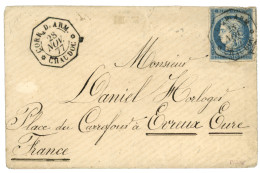 CORR. D. ARM.
28
NOV
77
CHAUDOC
Monsieur
Daniel Horloger
Place du Carrefour à Evreux Eure
France